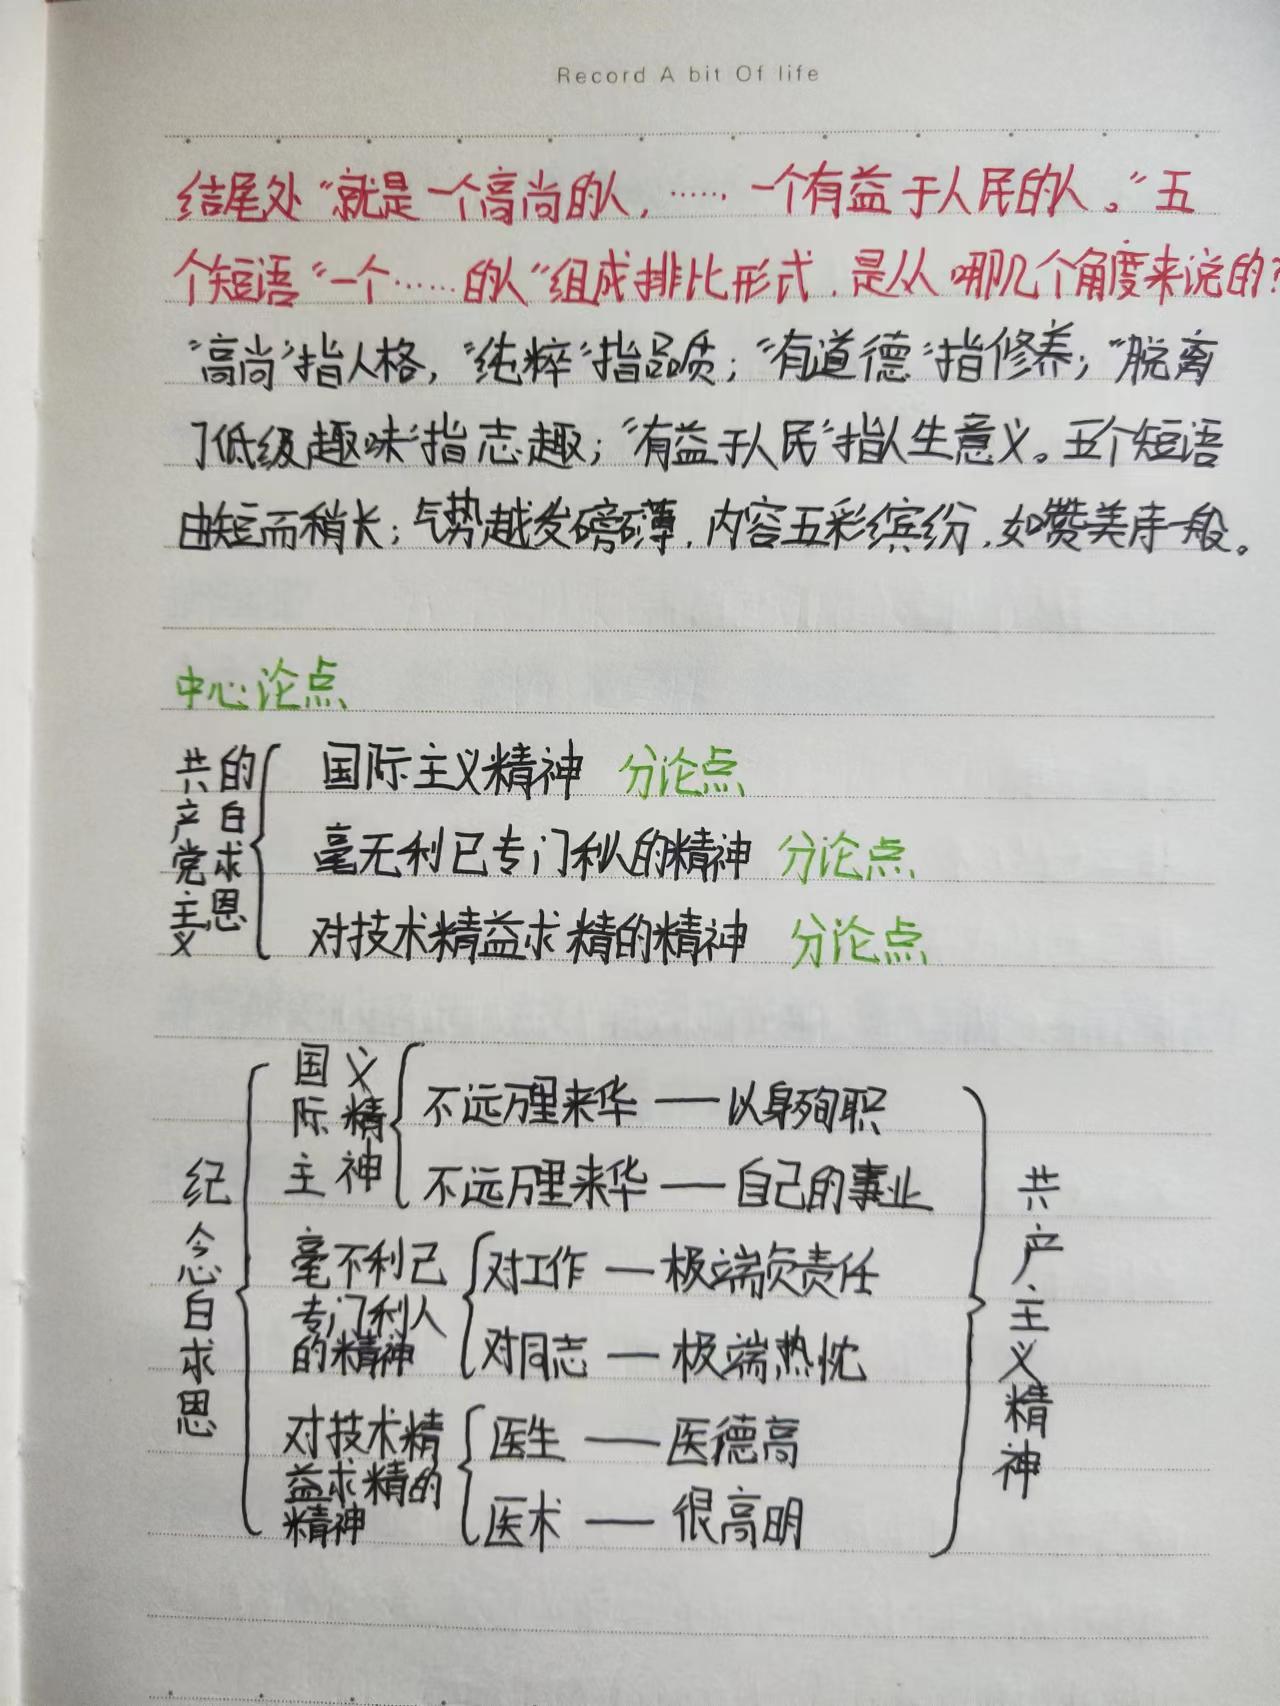 Record A bit Of life
结尾处“就是一个高尚的人，……，一个有益于人民的人。”五
个短语“一个……的人”组成排比形式，是从哪几个角度来说的？
“高尚”指人格，“纯粹”指品质；“有道德”指修养；“脱离
了低级趣味”指志趣；“有益于人民”指人生意义。五个短语
由短而稍长；气势越发磅礴，内容五彩缤纷，如赞美诗一般。
中心论点
共产党主义
的白求恩
国际主义精神 分论点
毫无利己专门利人的精神 分论点
对技术精益求精的精神 分论点
纪念白求恩
国际主义精神
不远万里来华——以身殉职
不远万里来华——自己的事业
毫不利己
专门利人
的精神
对工作——极端负责任
对同志——极端热忱
对技术精
益求精的
精神
医生——医德高
医术——很高明
共产主义精神